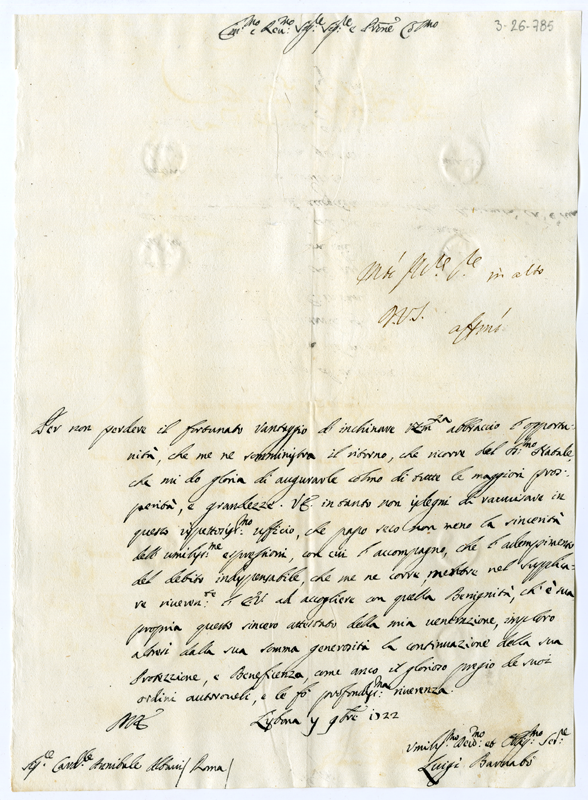 3-26-785
Em.mo e Rev.mo Sig.re Sig.re e Prone Col.mo
in alto
V.S.
aff.mo
Per non perdere il fortunato vantaggio di inchinare abbraccio l'opportu-
nità, che me ne somministra il ritorno, che ricorre del S.mo Natale
che mi do gloria di augurarle colmo di tutte le maggiori pros-
perità, e grandezze. V.E. intanto non isdegni di ravvisare in
questo rispettosiss.mo uffizio, che passo seco non meno la sincerità
delle umiliss.me espressioni, con cui l'accompagno, che l'adempimento
del debito indispensabile, che me ne corre mentre nel supplica-
re riveren.te l'E.V. ad accogliere con quella Benignità, ch'è sua
propria questo sincero attestato della mia venerazione, imploro
altresì dalla sua somma generosità la continuazione della sua
Protezzione, e Beneficenza, come anco il glorioso pregio de suoi
ordini autorevoli, e le fo profondiss.ma riverenza.
Lysbona 9bre 1722
Umiliss.mo Devo.mo et Obblig.mo Ser.re
Sig.re Card.le Annibale Albani / Roma /
Luigi Barnabò